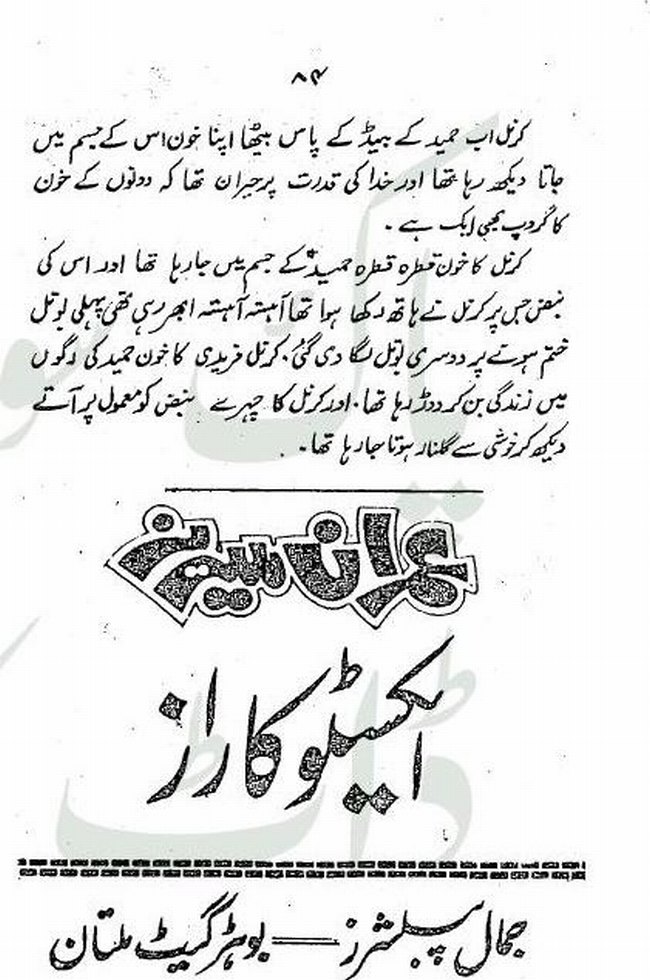 ۸۴
کرنل اب حمید کے بیڈ کے پاس بیٹھا اپنا خون اس کے جسم میں
جاتا دیکھ رہا تھا اور خدا کی قدرت پر حیران تھا کہ دونوں کے خون
کا گروپ بھی ایک ہے۔
کرنل کا خون قطرہ قطرہ حمید کے جسم میں جا رہا تھا اور اس کی
نبض جس پر کرنل نے ہاتھ رکھا ہوا تھا آہستہ آہستہ ابھر رہی تھی پہلی بوتل
ختم ہونے پر دوسری بوتل لگا دی گئی۔ کرنل فریدی کا خون حمید کی رگوں
میں زندگی بن کر دوڑ رہا تھا۔ اور کرنل کا چہرے نبض کو معمول پر آتے
دیکھ کر خوشی سے گلنار ہوتا جا رہا تھا۔
عمران سیریز
ایکسٹو کا راز
جمال پبلشرز — بوہڑ گیٹ ملتان
پاک سو
ڈاٹ